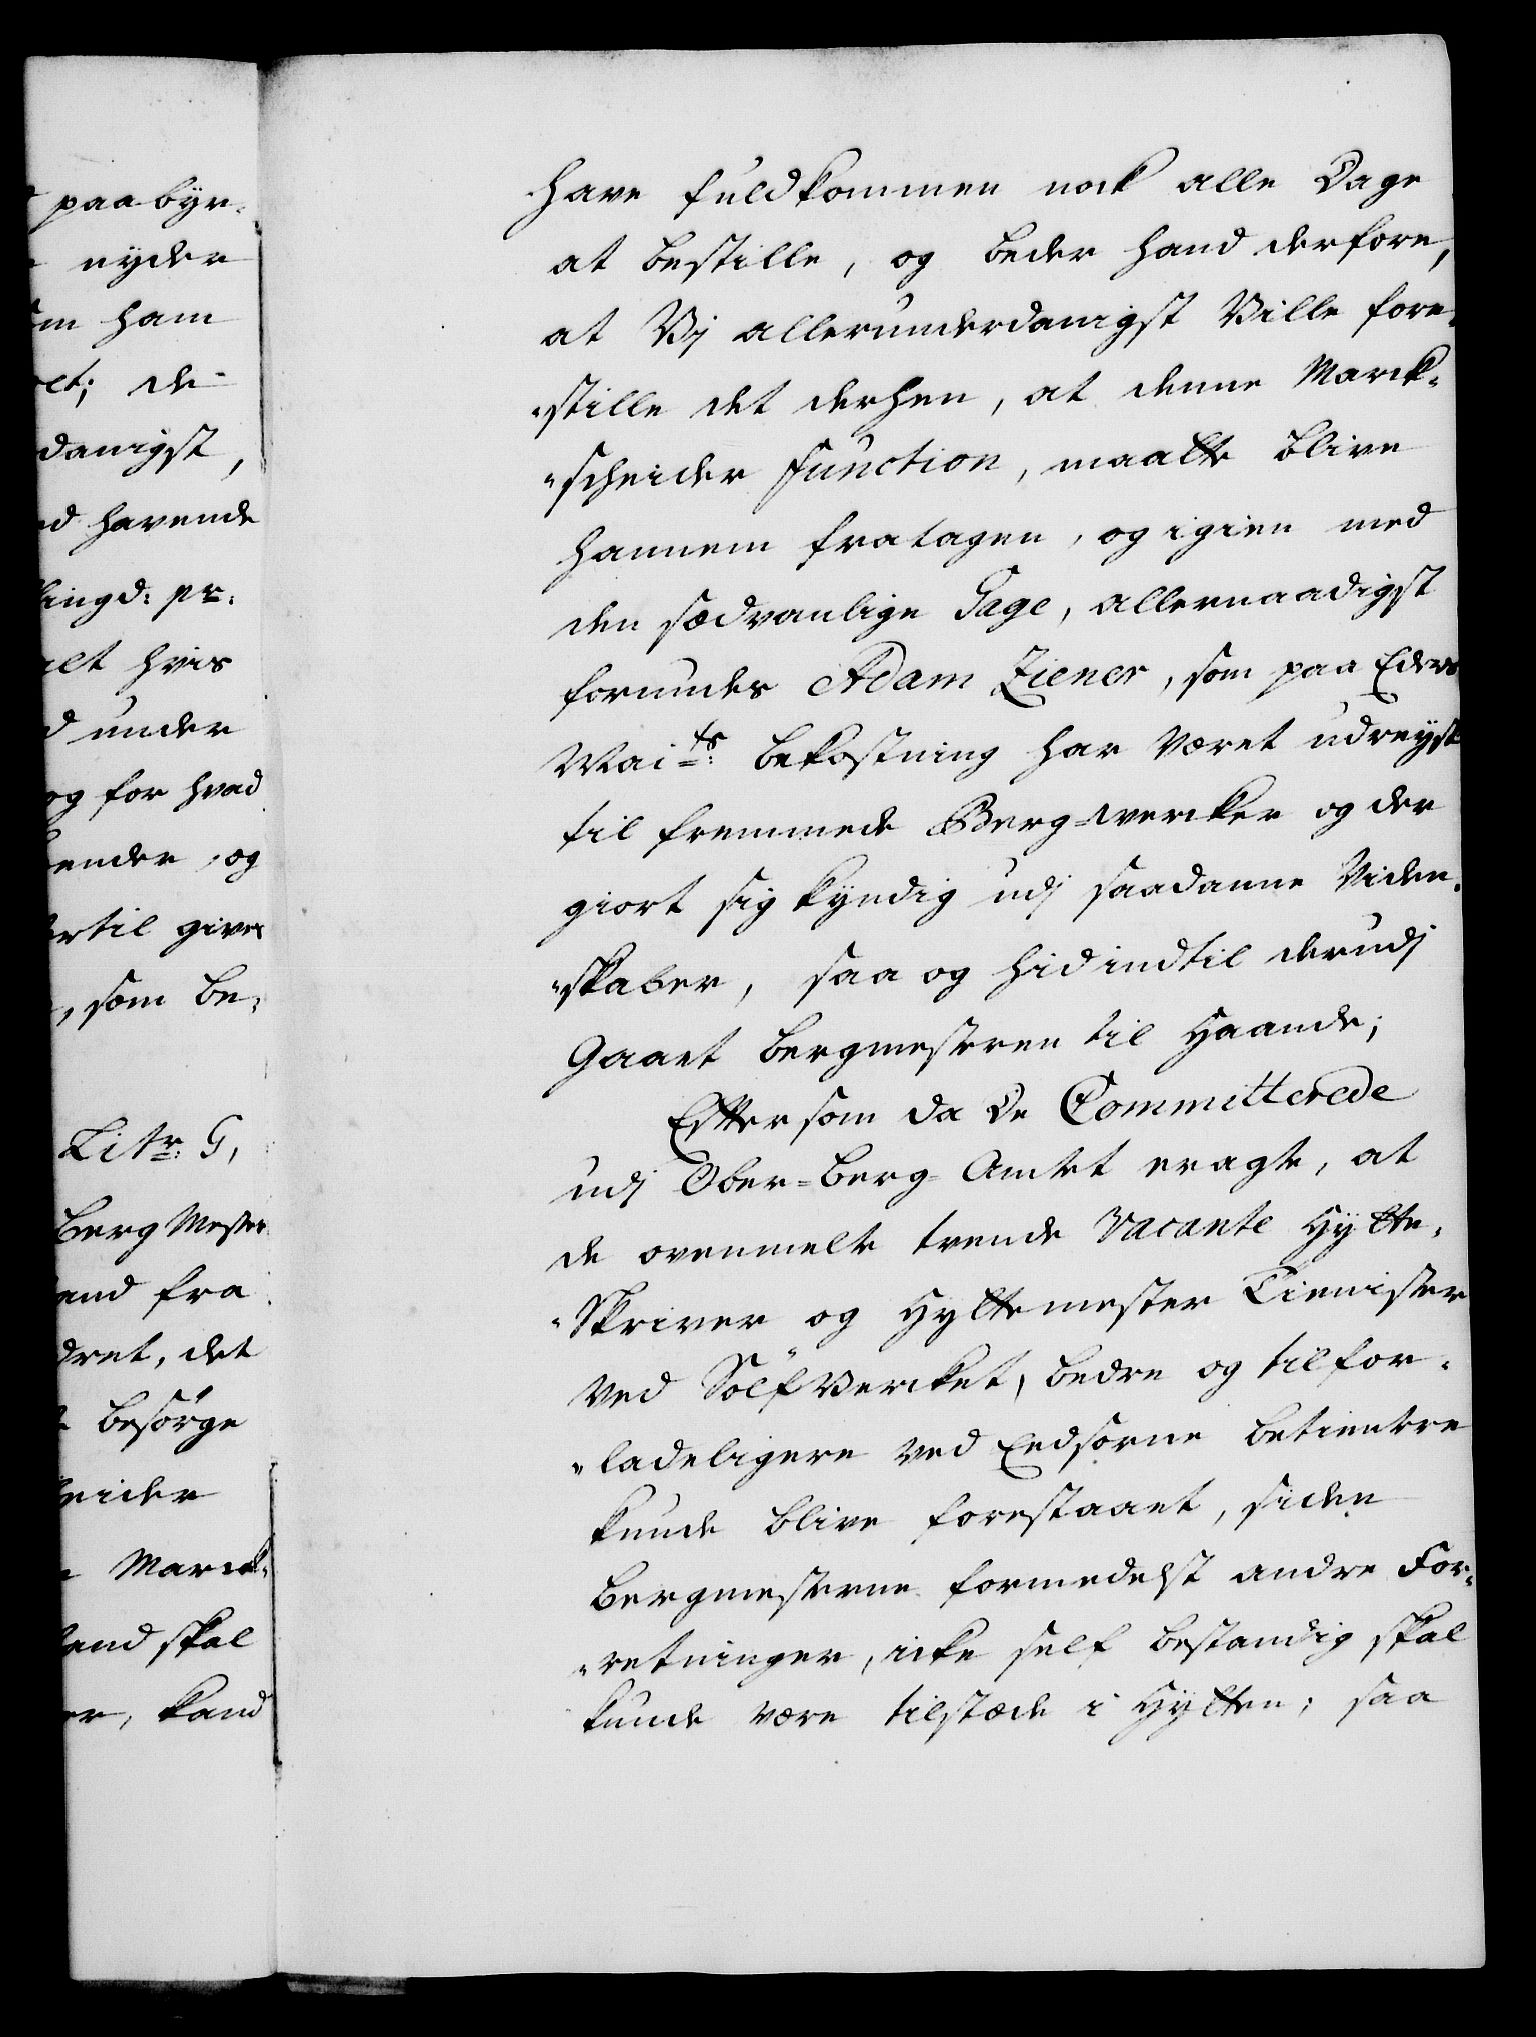 paabyr-
nyder
ham
et; de
danigst,
d havende
lingd: pr:
alt hvis
d under
og for hvad
ender, og
ertil gives
, som be-
Litr: G,
Berg Mester
and fra
dret, det
besörge
eider
Marck-
hand skal
er, kand
have fuldkommen nock alle Dage
at bestille, og beder hand derfore,
at Vj allerunderdanigst Ville fore-
"stille det derhen, at denne Marck-
"scheider Function, maatte blive
hannem fratagen, og igien med
den sædvanlige Gage, allernaadigst
forundes Adam Ziener, som paa Eders
Maits: bekostning har Været udreyst
til fremmede Berg-wercker og der
giort sig kyndig udj saadanne Viden-
"skaber, saa og hidindtil derudj
Gaaet bergmesteren til Haande;
Eftersom da De Committerede
udj Ober-berg-Amtet eragte, at
de ovenmelte trende Vacante Hytte-
"Skriver og Hyttemester Tienister
Ved Sölfvercket, bedre og tilfor-
"ladeligere ved Eedsorne betientere
kunde blive forestaaet, siden
bergmesterne formedelst andre For-
"retninger, icke self bestandig skal
kunde være tilstæde i Hytten; saa